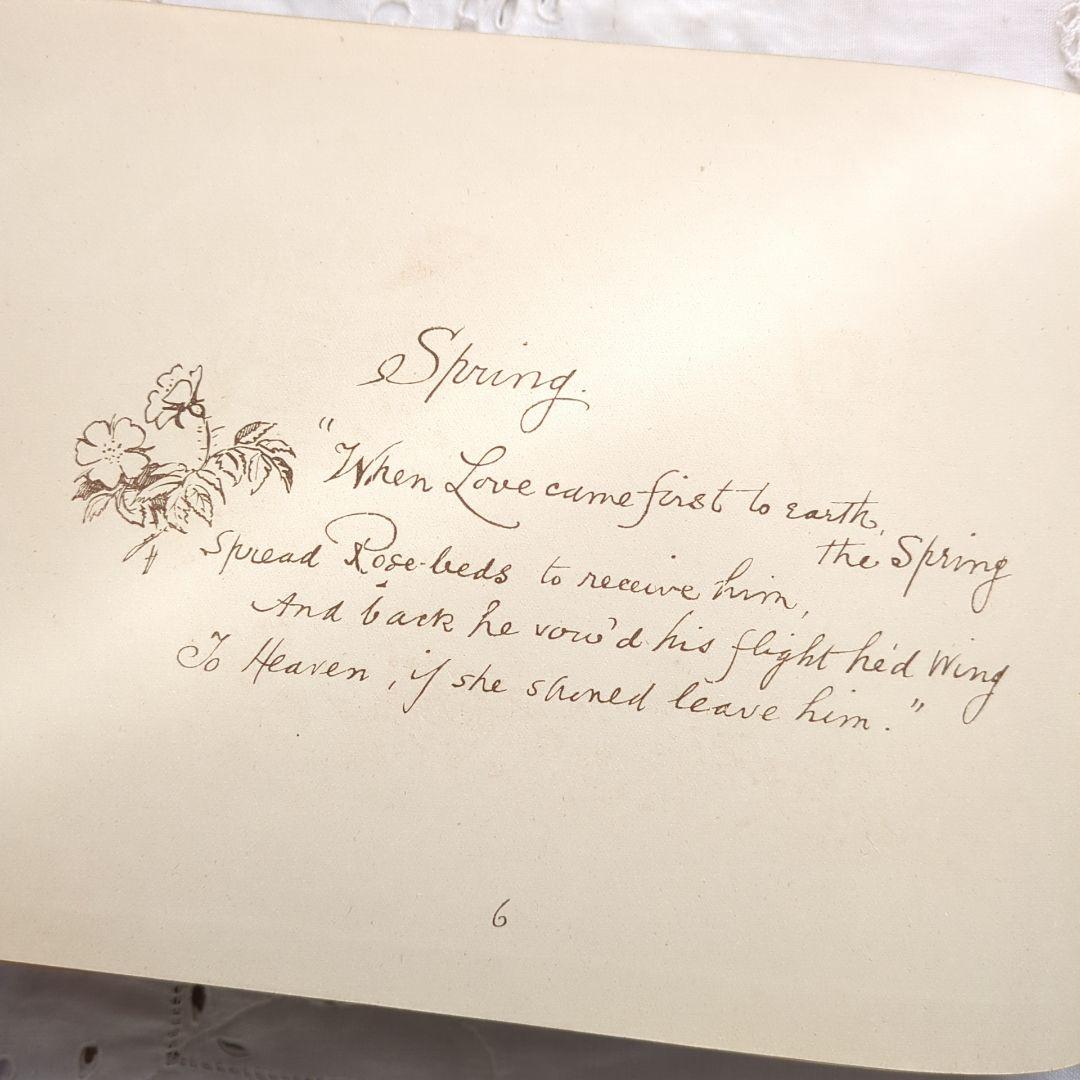 Spring.
"When Love came first to earth,
the Spring
Spread Rose-beds to receive him,
And back he vow'd his flight he'd wing
To Heaven, if she should leave him."
6